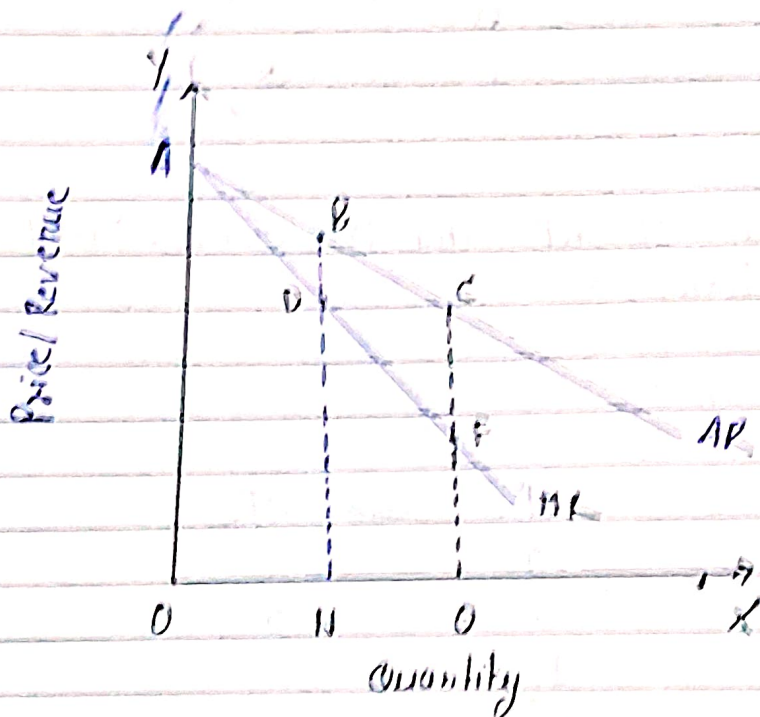 Y
A
Price/ Revenue
B
D
C
F
AR
MR
O
N
Q
X
Quantity